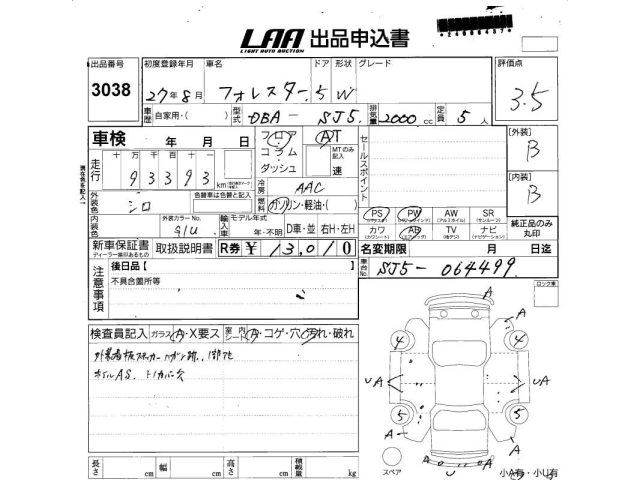 LAA 出品申込書
LIGHT AUTO AUCTION
出品番号
3038
初度登録年月
27年8月
車名
フォレスター
ドア
5
形状
W
グレード
評価点
3.5
車歴
自家用・( )
型式
DBA - SJ5
排気量
2000 cc
定員
5 人
車検
年 月 日
フロア
コラム
ダッシュ
AT
MTのみ記入
速
セールスポイント
[外装]
B
[内装]
B
走行
十 万 千 百 十
93393 km
冷房
AAC
燃料
ガソリン・軽油・( )
外装色
シロ
色替車は色替と記入
内装色
外装カラーNo.
G1U
輸入車
モデル年式
年・不明
D車・並
右H・左H
PS
PW
AW
SR
カワ
AB
TV
ナビ
純正品のみ丸印
新車保証書
ディーラー捺印あるもの
取扱説明書
R券
¥ 13,010
名変期限
月 日迄
車台No.
SJ5-064499
注意事項
後日品 [ ]
不具合箇所等
ロック車
検査員記入
ガラス
A・X要ス
室内シート
A・コゲ・穴・汚れ・破れ
ホイルAS.
A
A
4
4
UA
UA
5
5
A
A
U
スペア
長さ cm
幅 cm
高さ cm
積載量 kg
小A有・小U有